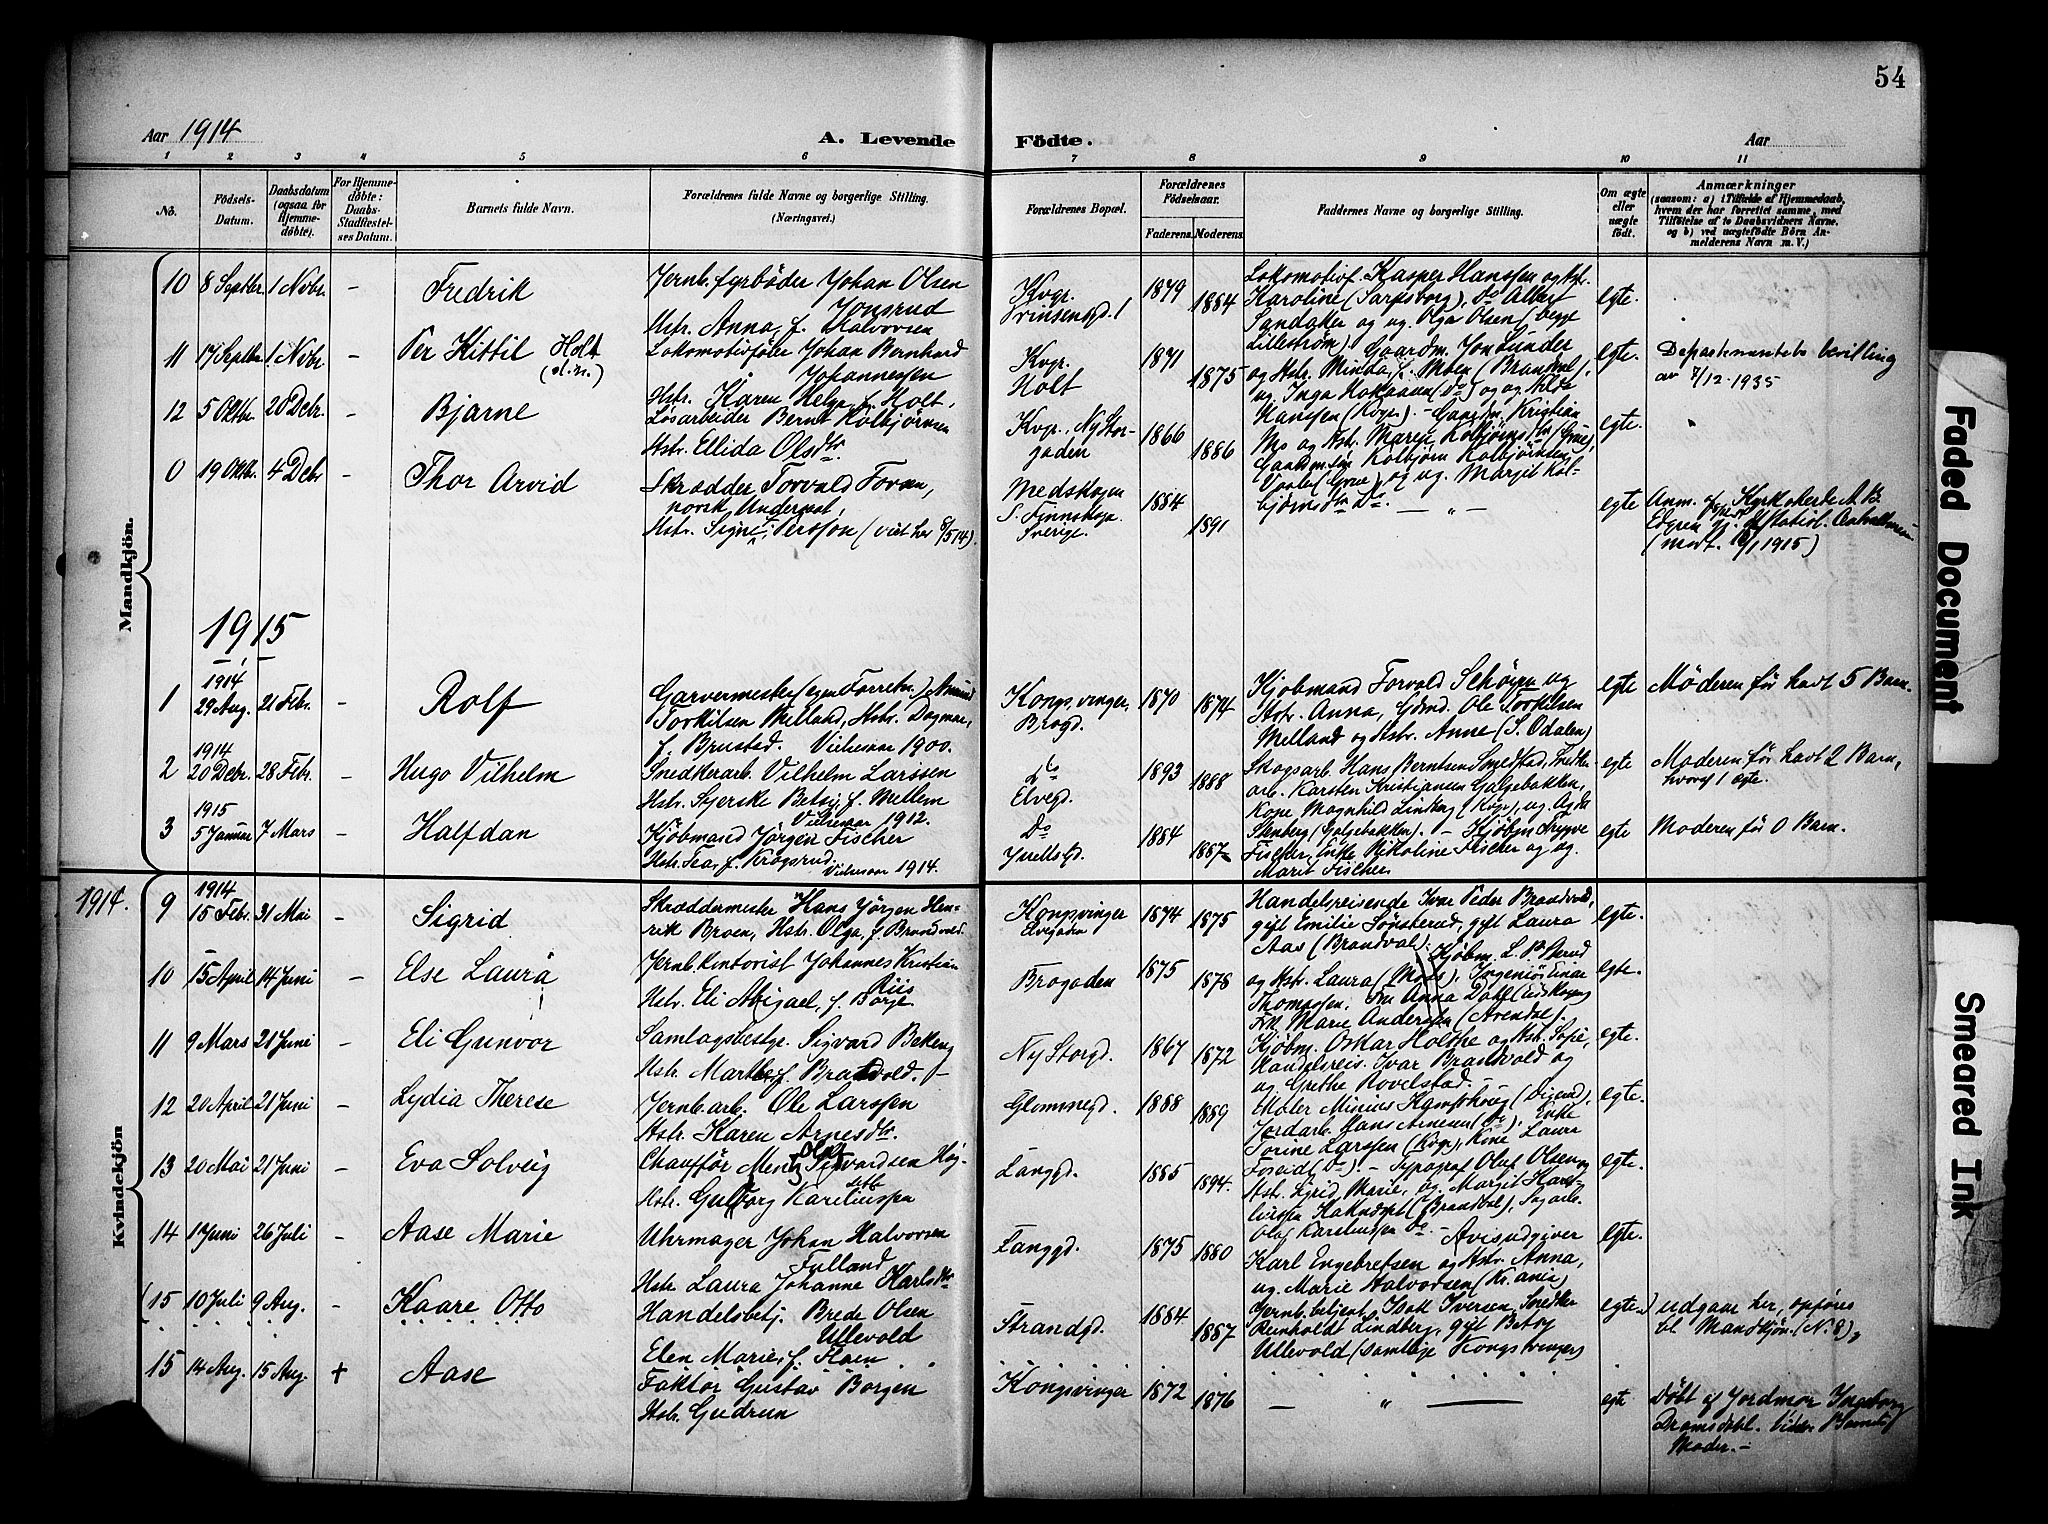 54
Aar 1914
A. Levende
Födte.
Aar
1 2 3 4 5 6 7 8 9 10 11
No.
Födsels-
Datum.
Daabsdatum
(ogsaa for
Hjemme-
döbte).
For Hjemme-
döbte:
Daabs-
Stadfæstel-
ses Datum.
Barnets fulde Navn.
Forældrenes fulde Navne og borgerlige Stilling.
(Næringsvei.)
Forældrenes Bopæl.
Forældrenes
Födselsaar.
Faderens. Moderens.
Faddernes Navne og borgerlige Stilling.
Om ægte
eller
uægte
födt.
Anmærkninger
(saasom: a) i Tilfælde af Hjemmedaab,
hvem der har forrettet samme, med
Tilföielse af to Daabsvidners Navne,
og b) ved uægtefödte Börn An-
melderens Navn m. V.)
Mandkjön.
10 8 Septbr. 1 Novbr. – Fredrik
Jernb. fyrbøder Johan Olsen
Jonsrud
Hstr. Anna, f. Halvorsen
Kvgr.
Prinsensgd. 1
1879 1884
Lokomotivf. Kasper Hanssen og Hst.
Karoline (Sarpsborg), Do Albert
Sandaker og ug. Olga Olsen (begge
Lillestrøm)
egte.
11 17 Septbr. 1 Novbr. – Per Kittil Holt
Lokomotivfører Johan Bernhard
Johannessen
Hstr. Karen Helga f. Holt.
Kvgr.
Holt
1871 1875
Gaardm. Jon Lunder
og Hstr. Minda, f. Moen (Brandval),
ug. Inga Hokaasen (Do) og ug. Hilda
Hanssen (Kvgr.).
egte.
Departementets bevilling
av 7/12-1935
12 5 Oktbr. 20 Debr. – Bjarne
Løsarbeider Bernt Kolbjørnsen
Hstr. Ellida Olsdtr.
Kvgr., Ny Stor-
gaden
1866 1886
– Gaardm. Kristian
Mo og Hstr. Marie Kolbjørnsdtr (Grue),
Gaardm.søn Kolbjørn Kolbjørnsen
Vaaler (Grue), og ug. Margit Kol-
bjørnsdtr Do.
egte.
0 19 Oktbr. 4 Debr – Thor Arvid
Skrædder Torvald Foraan,
norsk Undersaat,
Hstr. Signe Persson (viet her 8/5 14).
Medskogen
S. Finnskoga
Sverige.
1884 1891
– " –
egte
Anm. af Kyrkoherde A. B.
Edgren
(modt. 18/1 1915)
1915
1 1914
29 Aug. 21 Febr. – Rolf
Garvermester (egen Forretn.) Amund
Torkilsen Melland, Hstr. Dagmar,
f. Brustad. Vielsesaar 1900.
Kongsvinger,
Brogd.
1870 1874
Kjøbmand Torvald Schøyen og
Hstr. Anna, Gdmd. Ole Torkilsen
Melland og Hstr. Anne (S. Odalen)
egte
Moderen før havt 5 Barn.
2 1914
20 Debr. 28 Febr. – Hugo Vilhelm
Snedkerarb. Vilhelm Larssen
Hstr. Syerske Betsy, f. Mellem
Vielsesaar 1912.
Do
Elvegd.
1893 1888
Skogsarb. Hans Berntsen Smedstad, Snedker-
arb. Karsten Kristiansen Galgebakken,
Kone Magnhild Lindberg (Kvgr.), ug. Agda
Stenberg (Galgebakken).
egte
Moderen før havt 2 Barn,
hvoraf 1 egte.
3 1915
5 Januar 7 Mars – Halfdan
Kjøbmand Jørgen Fischer
Hstr. Tea, f. Krogsrud.
Vielsesaar 1914.
Do
1884 1887
– Kjøbm Trygve
Fischer, Enke Nikoline Fischer og ug.
Marit Fischer
egte
Moderen før 0 Barn.
1914.
Kvindekjön
9 1914
15 Febr. 31 Mai – Sigrid
Skræddermester Hans Jørgen Hen-
rik Broen, Hstr. Olga, f. Brandvold.
Kongsvinger
Elvegaden
1874 1875
Handelsreisende Ivar Peder Brandvold,
gift Emilie Sønsterud, gift Laura
Aas (Brandval).
egte.
10 15 April 14 Juni – Else Laura
Jernb.kontorist Johannes Kristian
Riis
Hstr. Eli Abigael, f. Børje
Brogaden
1875 1878
Kjøbm. L. P. Berud
og Hstr. Laura (Moss), Ingeniør Einar
Thomassen, Frk Anna Dahl (Eidskogen)
Frk. Marie Andersen (Arendal).
egte.
11 9 Mars 21 Juni – Eli Gunvor
Samlagsbestyr. Sigvard Bekeng
Hstr. Marthe, f. Brandvold. –
Ny Storgd.
1867 1872
Kjøbm. Oskar Holthe og Hstr. Sofie,
Handelsreis. Ivar Brandvold og
ug. Grethe Rovelstad. –
egte.
12 20 April 21 Juni – Lydia Therese
Jernb.arb. Ole Larssen
Hstr. Karen Arnesdtr.
Glommegd.
1888 1889
Maler Minius Kampshoug (Digerud),
Jordarb. Hans Arnesen (Do), Enke
Torine Larssen (Kvgr.), Kone Laura
Foseid (Do).
egte.
13 20 Mai 21 Juni – Eva Solveig
Chauffør Mentz Olaf Sigvardsen Høg-
seth
Hstr. Gulborg Kareliussen
Langgd.
1885 1894.
– Typograf Oluf Olsen og
Hstr. Sigrid Marie, ug. Margit Kare-
liussen Haknæset (Brandval), Sagarb.
Olaf Kareliussen Do. –
egte.
14 1 Juni 26 Juli – Aase Marie
Uhrmager Johan Halvorsen
Fulland
Hstr Laura Johanne Karlsdtr
Langgd.
1875 1880
Avisudgiver
Karl Engebretsen og Hstr. Anna,
ug. Marie Halvorsen (Kr.ania)
egte.
(15 10 Juli 9 Aug. – Kaare Otto
Handelsbetj. Brede Olsen
Ullevold
Elen Marie, f. Floen
Strandgd.
1884 1887
Jernb.betjent Isak Iversen, Snedker
Reinholdt Lindberg, gift Betsy
Ullevold (samtlige Kongsvinger)
egte.)
udgaar her, opføres
bl. Mandkjøn (N. 8),
15 14 Aug. 15 Aug. + Aase
Faktor Gustav Borgen
Hstr. Gudrun
Kongsvinger
1872 1876
– " –
egte
Døbt af Jordmor Ingeborg
Moder. –
Faded Document
Smeared Ink